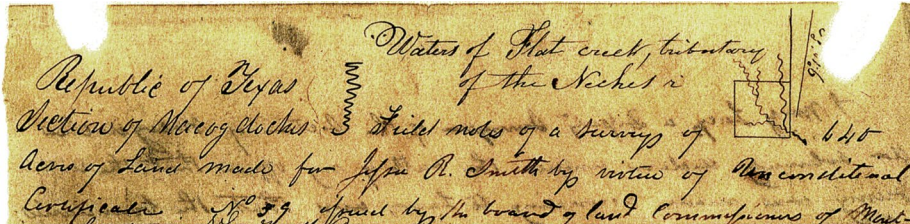 Waters of Flat creek, tributary
of the Neches r
Republic of Texas
Section of Nacogdoches Field notes of a survey of 640
Acres of Land made for R. Smith by virtue of Unconditional
Certificate No 39 issued by the board of land Commissioners of